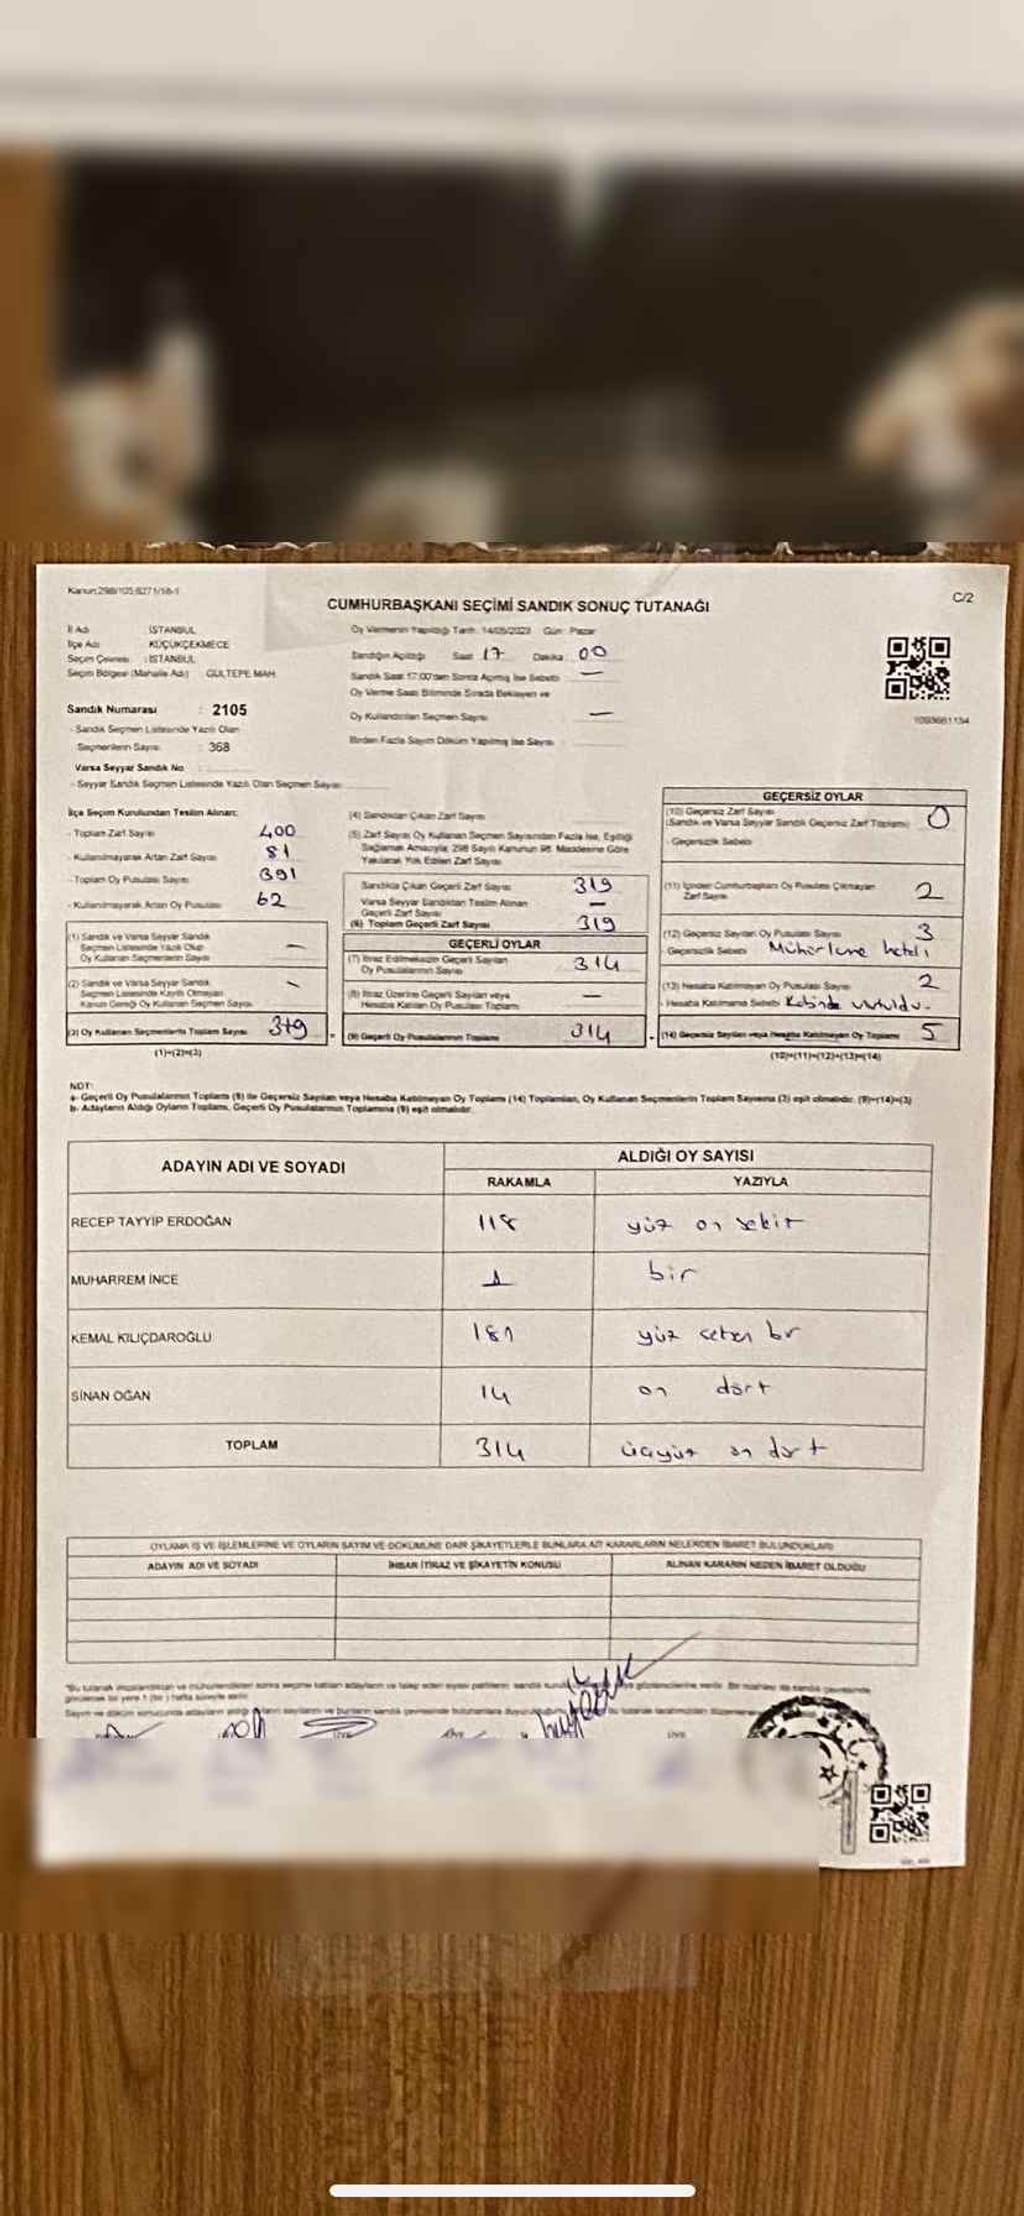 Kanun:298/105,6271/18-1
C/2
CUMHURBAŞKANI SEÇİMİ SANDIK SONUÇ TUTANAĞI
İl Adı İSTANBUL
İlçe Adı KÜÇÜKÇEKMECE
Seçim Çevresi : İSTANBUL
Seçim Bölgesi (Mahalle Adı) GÜLTEPE MAH.
Oy Vermenin Yapıldığı Tarih: 14/05/2023 Gün: Pazar
Sandığın Açıldığı Saat 17 Dakika 00
Sandık Saat 17:00'den Sonra Açılmış İse Sebebi —
Oy Verme Saati Bitiminde Sırada Bekleyen ve
Oy Kullandırılan Seçmen Sayısı —
Birden Fazla Sayım Döküm Yapılmış İse Sayısı
Sandık Numarası : 2105
- Sandık Seçmen Listesinde Yazılı Olan
Seçmenlerin Sayısı : 368
Varsa Seyyar Sandık No
- Seyyar Sandık Seçmen Listesinde Yazılı Olan Seçmen Sayısı
İlçe Seçim Kurulundan Teslim Alınan:
- Toplam Zarf Sayısı 400
- Kullanılmayarak Artan Zarf Sayısı 81
- Toplam Oy Pusulası Sayısı 391
- Kullanılmayarak Artan Oy Pusulası 62
(1) Sandık ve Varsa Seyyar Sandık
Seçmen Listesinde Yazılı Olup
Oy Kullanan Seçmenlerin Sayısı —
(2) Sandık ve Varsa Seyyar Sandık
Seçmen Listesinde Kayıtlı Olmayan
Kanun Gereği Oy Kullanan Seçmen Sayısı —
(3) Oy Kullanan Seçmenlerin Toplam Sayısı 319
(1)+(2)=(3)
(4) Sandıktan Çıkan Zarf Sayısı
(5) Zarf Sayısı Oy Kullanan Seçmen Sayısından Fazla İse, Eşitliği
Sağlamak Amacıyla, 298 Sayılı Kanunun 98. Maddesine Göre
Yakılarak Yok Edilen Zarf Sayısı
Sandıkta Çıkan Geçerli Zarf Sayısı 319
Varsa Seyyar Sandıktan Teslim Alınan
Geçerli Zarf Sayısı —
(6) Toplam Geçerli Zarf Sayısı 319
GEÇERLİ OYLAR
(7) İtiraz Edilmeksizin Geçerli Sayılan
Oy Pusulalarının Sayısı 314
(8) İtiraz Üzerine Geçerli Sayılan veya
Hesaba Katılan Oy Pusulası Toplamı —
(9) Geçerli Oy Pusulalarının Toplamı 314
GEÇERSİZ OYLAR
(10) Geçersiz Zarf Sayısı
(Sandık ve Varsa Seyyar Sandık Geçersiz Zarf Toplamı) 0
- Geçersizlik Sebebi
(11) İçinden Cumhurbaşkanı Oy Pusulası Çıkmayan
Zarf Sayısı 2
(12) Geçersiz Sayılan Oy Pusulası Sayısı 3
- Geçersizlik Sebebi Mühürleme hatalı
(13) Hesaba Katılmayan Oy Pusulası Sayısı 2
- Hesaba Katılmama Sebebi Kabinde unutuldu.
(14) Geçersiz Sayılan veya Hesaba Katılmayan Oy Toplamı 5
(10)+(11)+(12)+(13)=(14)
NOT:
a- Geçerli Oy Pusulalarının Toplamı (9) ile Geçersiz Sayılan veya Hesaba Katılmayan Oy Toplamı (14) Toplamları, Oy Kullanan Seçmenlerin Toplam Sayısına (3) eşit olmalıdır. (9)+(14)=(3)
b- Adayların Aldığı Oyların Toplamı, Geçerli Oy Pusulalarının Toplamına (9) eşit olmalıdır.
ADAYIN ADI VE SOYADI
ALDIĞI OY SAYISI
RAKAMLA YAZIYLA
RECEP TAYYİP ERDOĞAN 118 yüz on sekiz
MUHARREM İNCE 1 bir
KEMAL KILIÇDAROĞLU 181 yüz seksen bir
SİNAN OĞAN 14 on dört
TOPLAM 314 üçyüz on dört
OYLAMA İŞ VE İŞLEMLERİNE VE OYLARIN SAYIM VE DÖKÜMÜNE DAİR ŞİKAYETLERLE BUNLARA AİT KARARLARIN NELERDEN İBARET BULUNDUKLARI
ADAYIN ADI VE SOYADI
İHBAR İTİRAZ VE ŞİKAYETİN KONUSU
ALINAN KARARIN NEDEN İBARET OLDUĞU